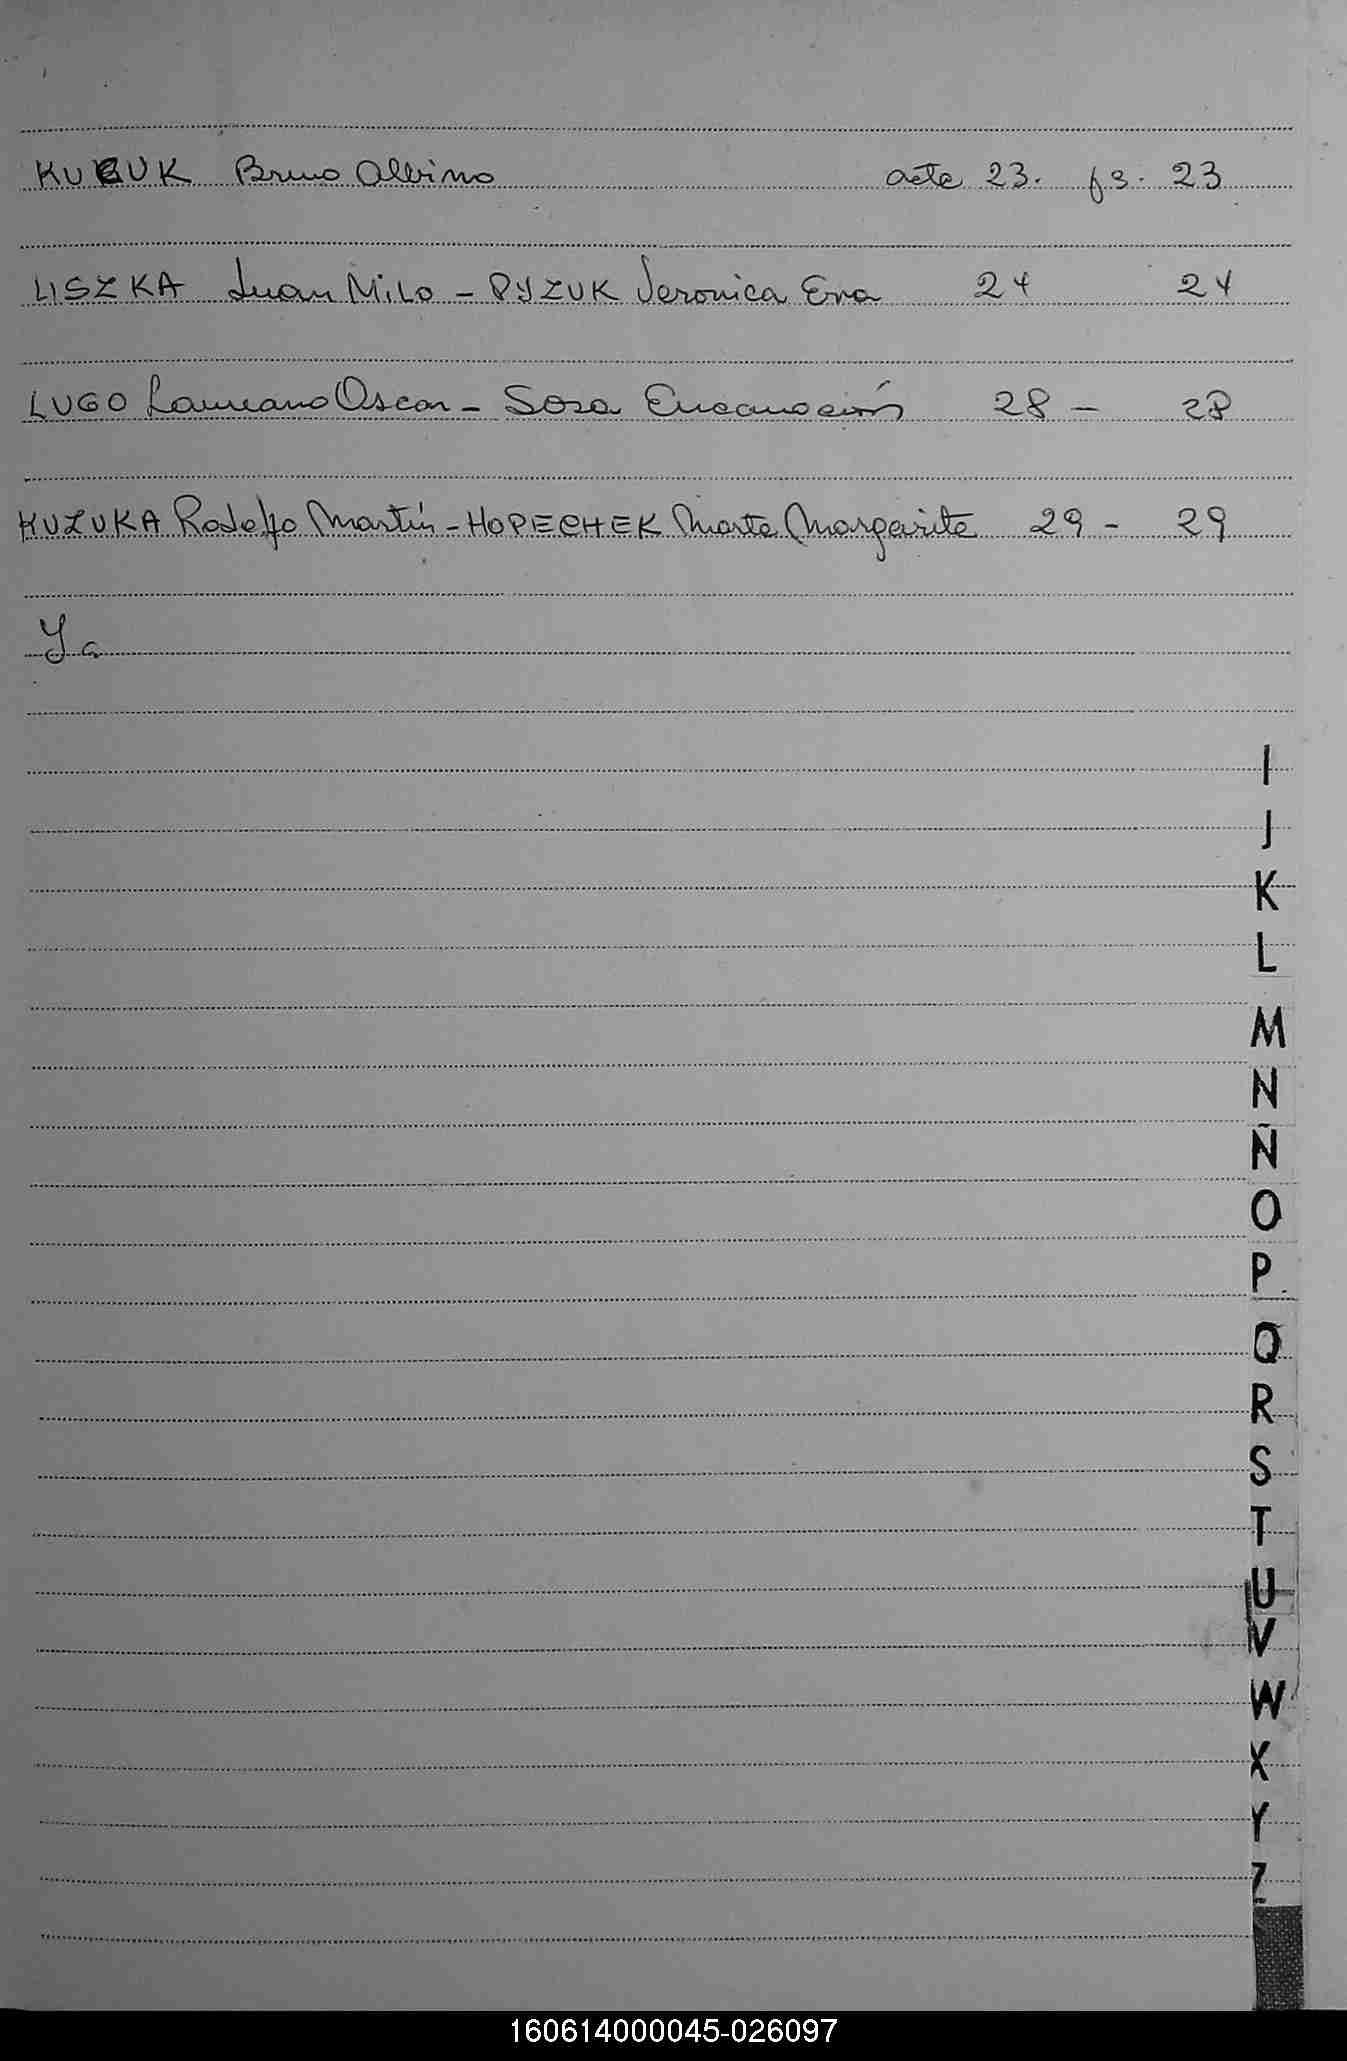 KUBUK Bruno Albino acta 23. fs. 23
LISZKA Juan Milo - PYZUK Veronica Eva 24 24
LUGO Laureano Oscar - Sosa Encarnación 28 - 28
KUZUKA Rodolfo Martín - HOPECHEK Marta Margarita 29 - 29
I
J
K
L
M
N
Ñ
O
P
Q
R
S
T
U
V
W
X
Y
Z
160614000045-026097